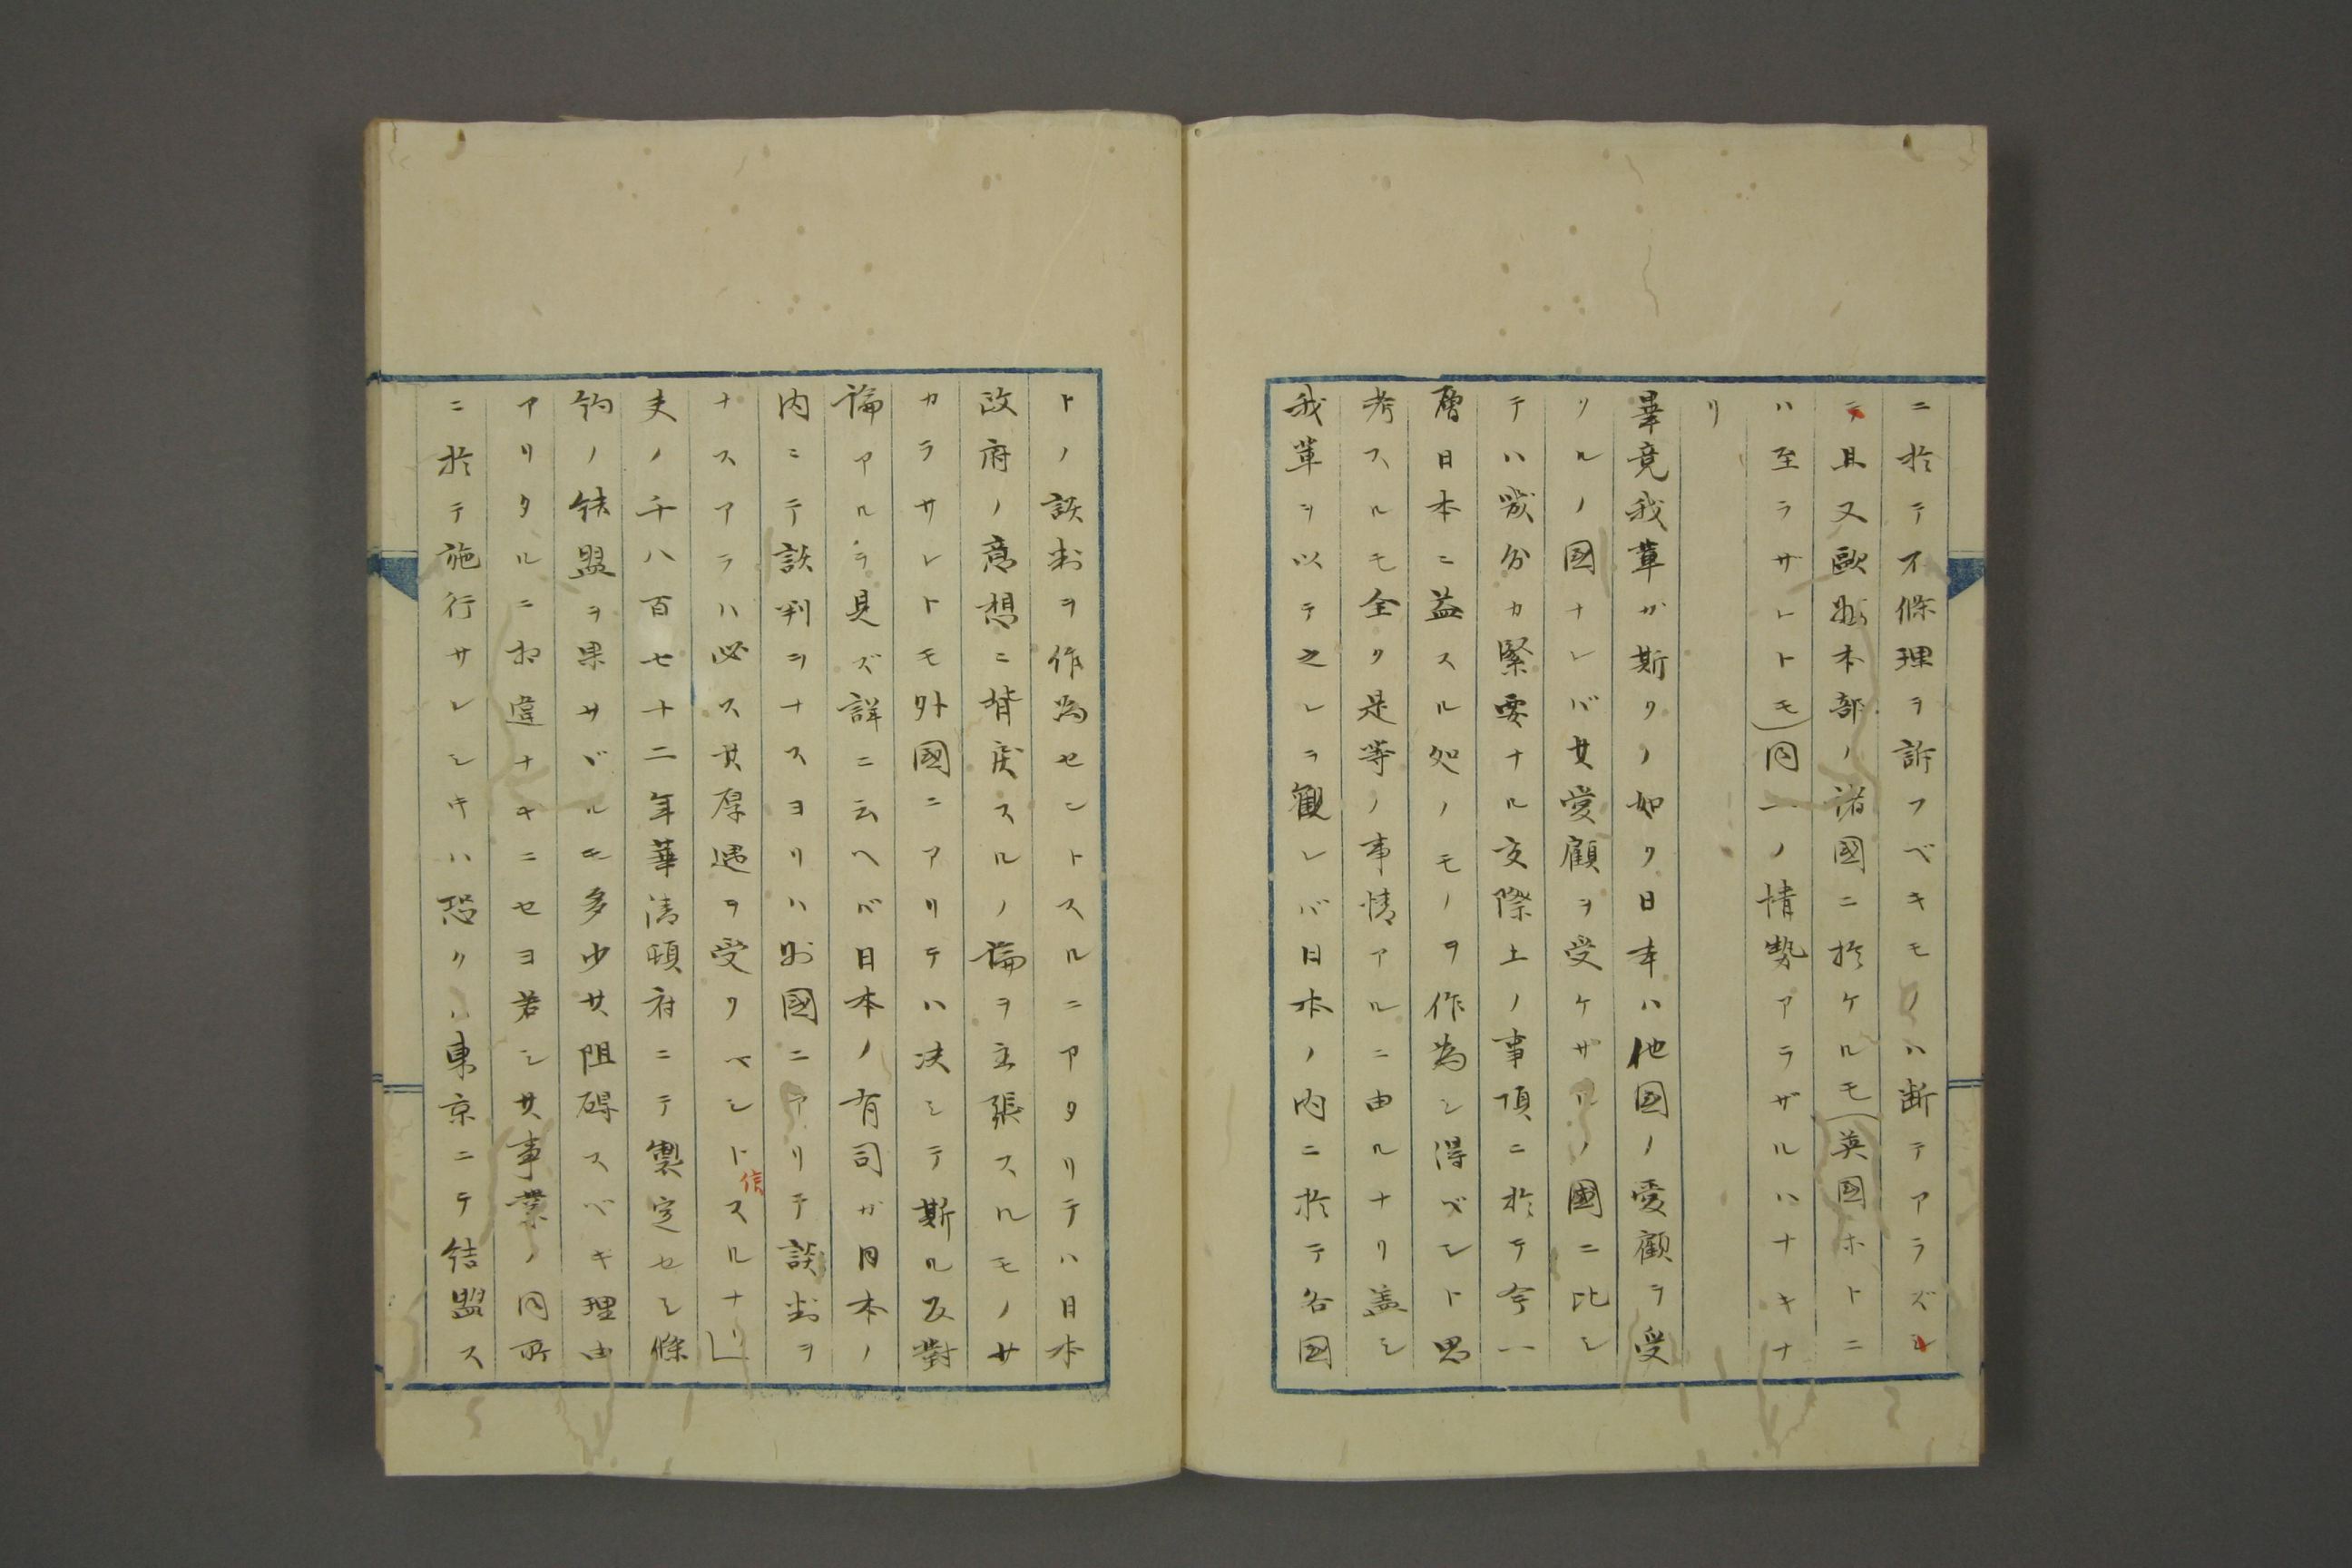 ニ於テ不條理ヲ訴フベキモノハ断テアラズシ
テ且又歐洲本部ノ諸國ニ於ケルモ(英國ホトニ
ハ至ラザレトモ)同一ノ情勢アラザルハナキナ
リ
畢竟我輩ガ斯クノ如ク日本ハ他国ノ愛顧ヲ受
クルノ國ナレバ其愛顧ヲ受ケザルノ國ニ比シ
テハ幾分カ緊要ナル交際上ノ事項ニ於テ今一
層日本ニ益スル処ノモノヲ作為シ得ベシト思
考スルモ全ク是等ノ事情アルニ由ルナリ盖シ
我輩ヲ以テ之レヲ觀レバ日本ノ内ニ於テ各国
トノ談判ヲ作為セントスルニアタリテハ日本
政府ノ意想ニ背戻スルノ論ヲ主張スルモノサ
カラサレトモ外國ニアリテハ决シテ斯ル反對
論アルヲ見ズ詳ニ云ヘバ日本ノ有司ガ日本ノ
内ニテ談判ヲナスヨリハ別國ニアリテ談判ヲ
ナスアラハ必ス其厚遇ヲ受クベシト信スルナリ
夫ノ千八百七十二年華清頓府ニテ製定セシ條
約ノ結盟ヲ果サバルモ多少其阻碍スベキ理由
アリタルニ相違ナキニセヨ若シ其事業ノ同所
ニ於テ施行サレシキハ恐クハ東京ニテ結盟ス